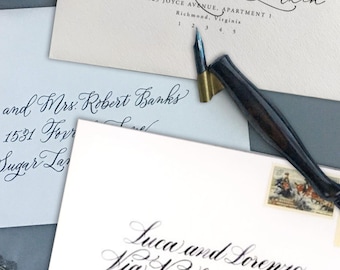 JOYCE AVENUE, APARTMENT 1
Richmond, Virginia
1 2 3 4 5
and Mrs. Robert Banks
1531
Sugar
Luca and Lorenzo
Via